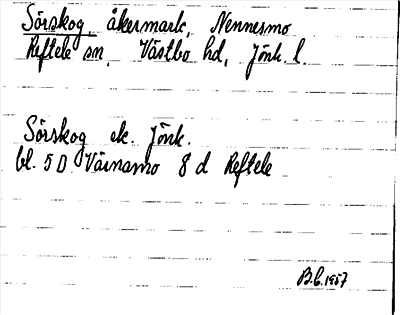 Sörskog, åkermark, Nennesmo
Reftele sn, Västbo hd, Jönk. l.
Sörskog ek. Jönk.
bl. 5 D Värnamo 8 d Reftele
B.C. 1957